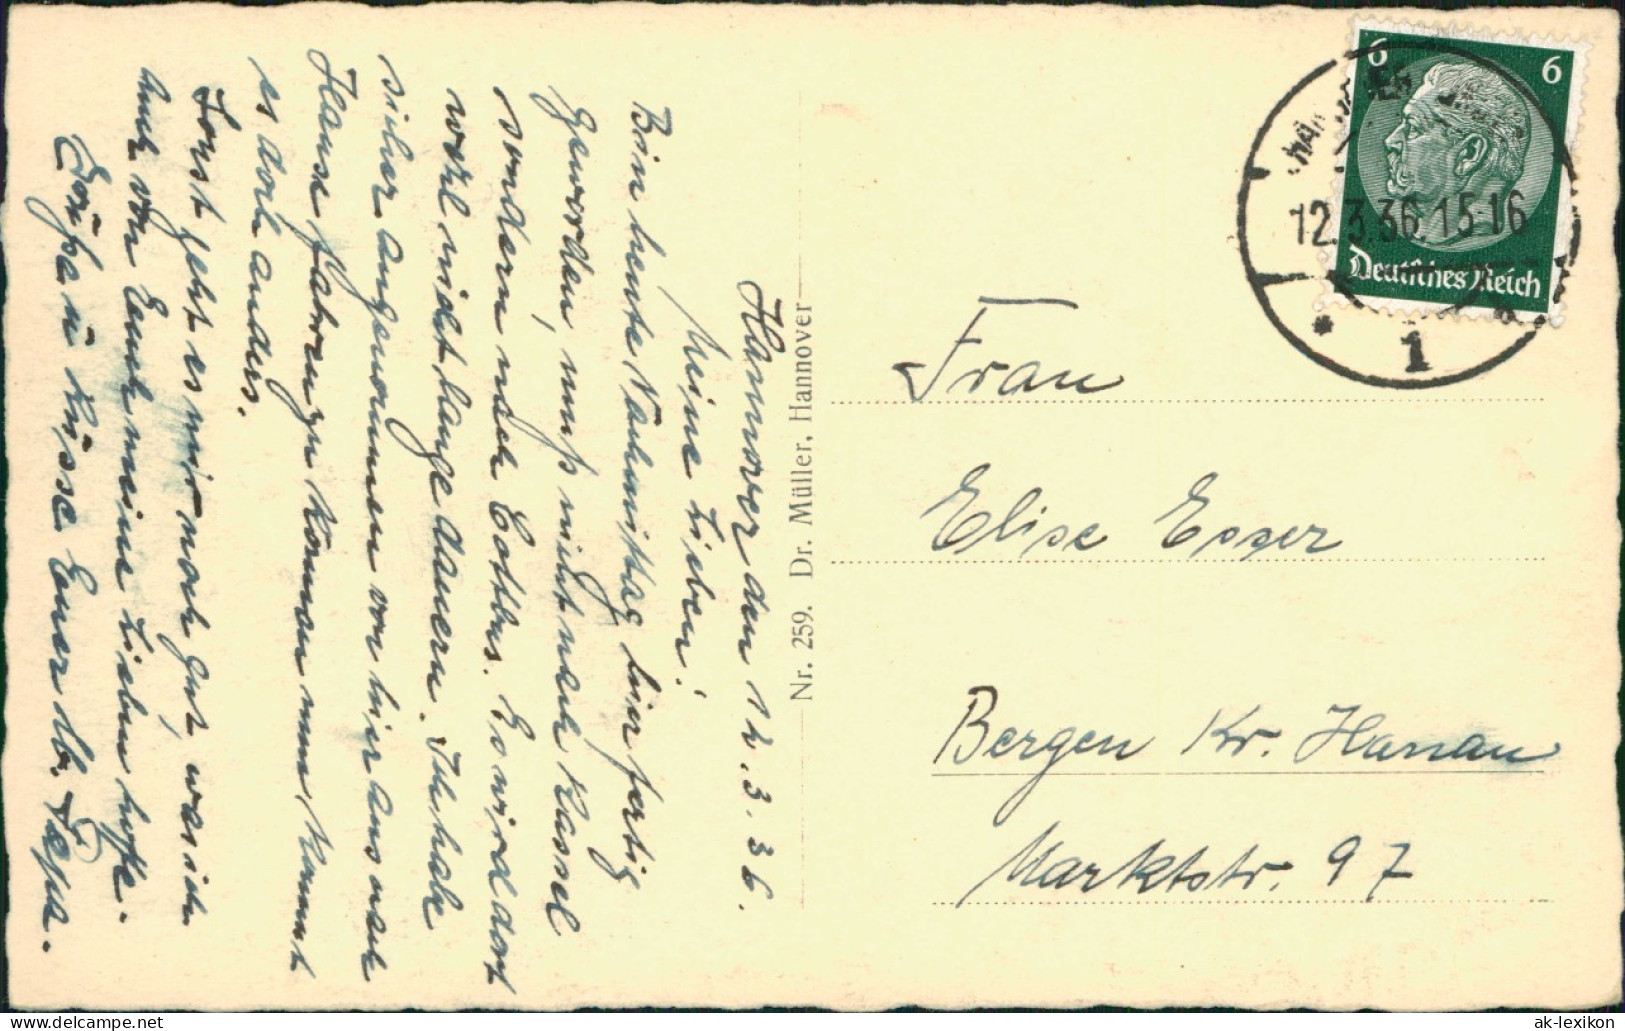 Hannover den 12.3.36.
Meine Lieben!
Bin heute Nachmittag hier fertig
geworden, muß nicht nach Kassel
sondern nach Cottbus. Es wird dort
wohl nicht lange dauern. Ich habe
sicher angenommen von hier aus nach
Hause fahren zu können nun kommt
es doch anders.
Sonst geht es mir noch gut, was ich
auch von Euch meine Lieben hoffe.
Grüße u Küsse Euer lb. Papa.
Nr. 259. Dr. Müller, Hannover
6 6
Deutsches Reich
HANNOVER
12.3.36.15-16
* 1
Frau
Elise Esser
Bergen Kr. Hanau
Marktstr. 97
www.delcampe.net
ak-lexikon